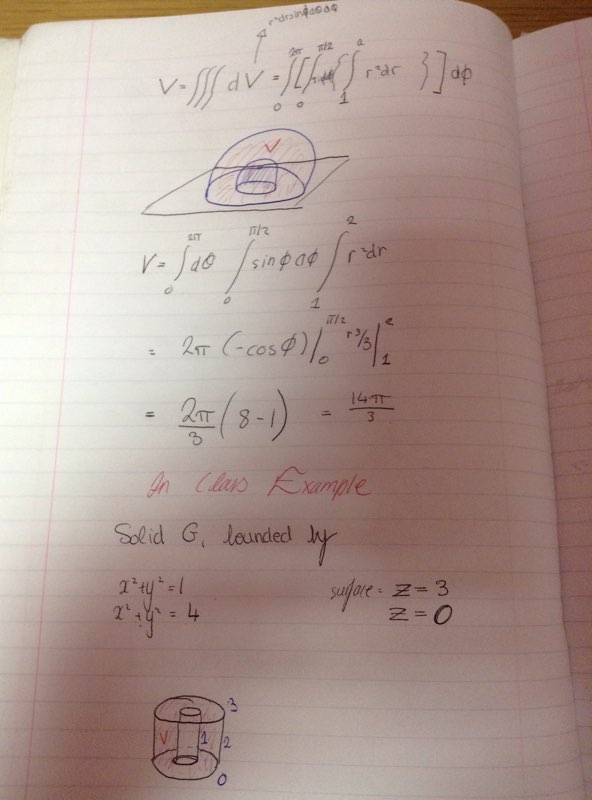 r²drsinϕdθdϕ
V=∭dV = ∫₀^2π[∫₀^π/2 sinϕ{∫₁² r²dr }]dϕ
V
V= ∫₀^2π dθ ∫₀^π/2 sinϕdϕ ∫₁² r²dr
= 2π (-cosϕ)|₀^π/2 r³/3|₁²
= 2π/3 (8-1) = 14π/3
In Class Example
Solid G, bounded by
x²+y²=1 surface = z=3
x²+y²=4 z=0
3
V 1 2
0